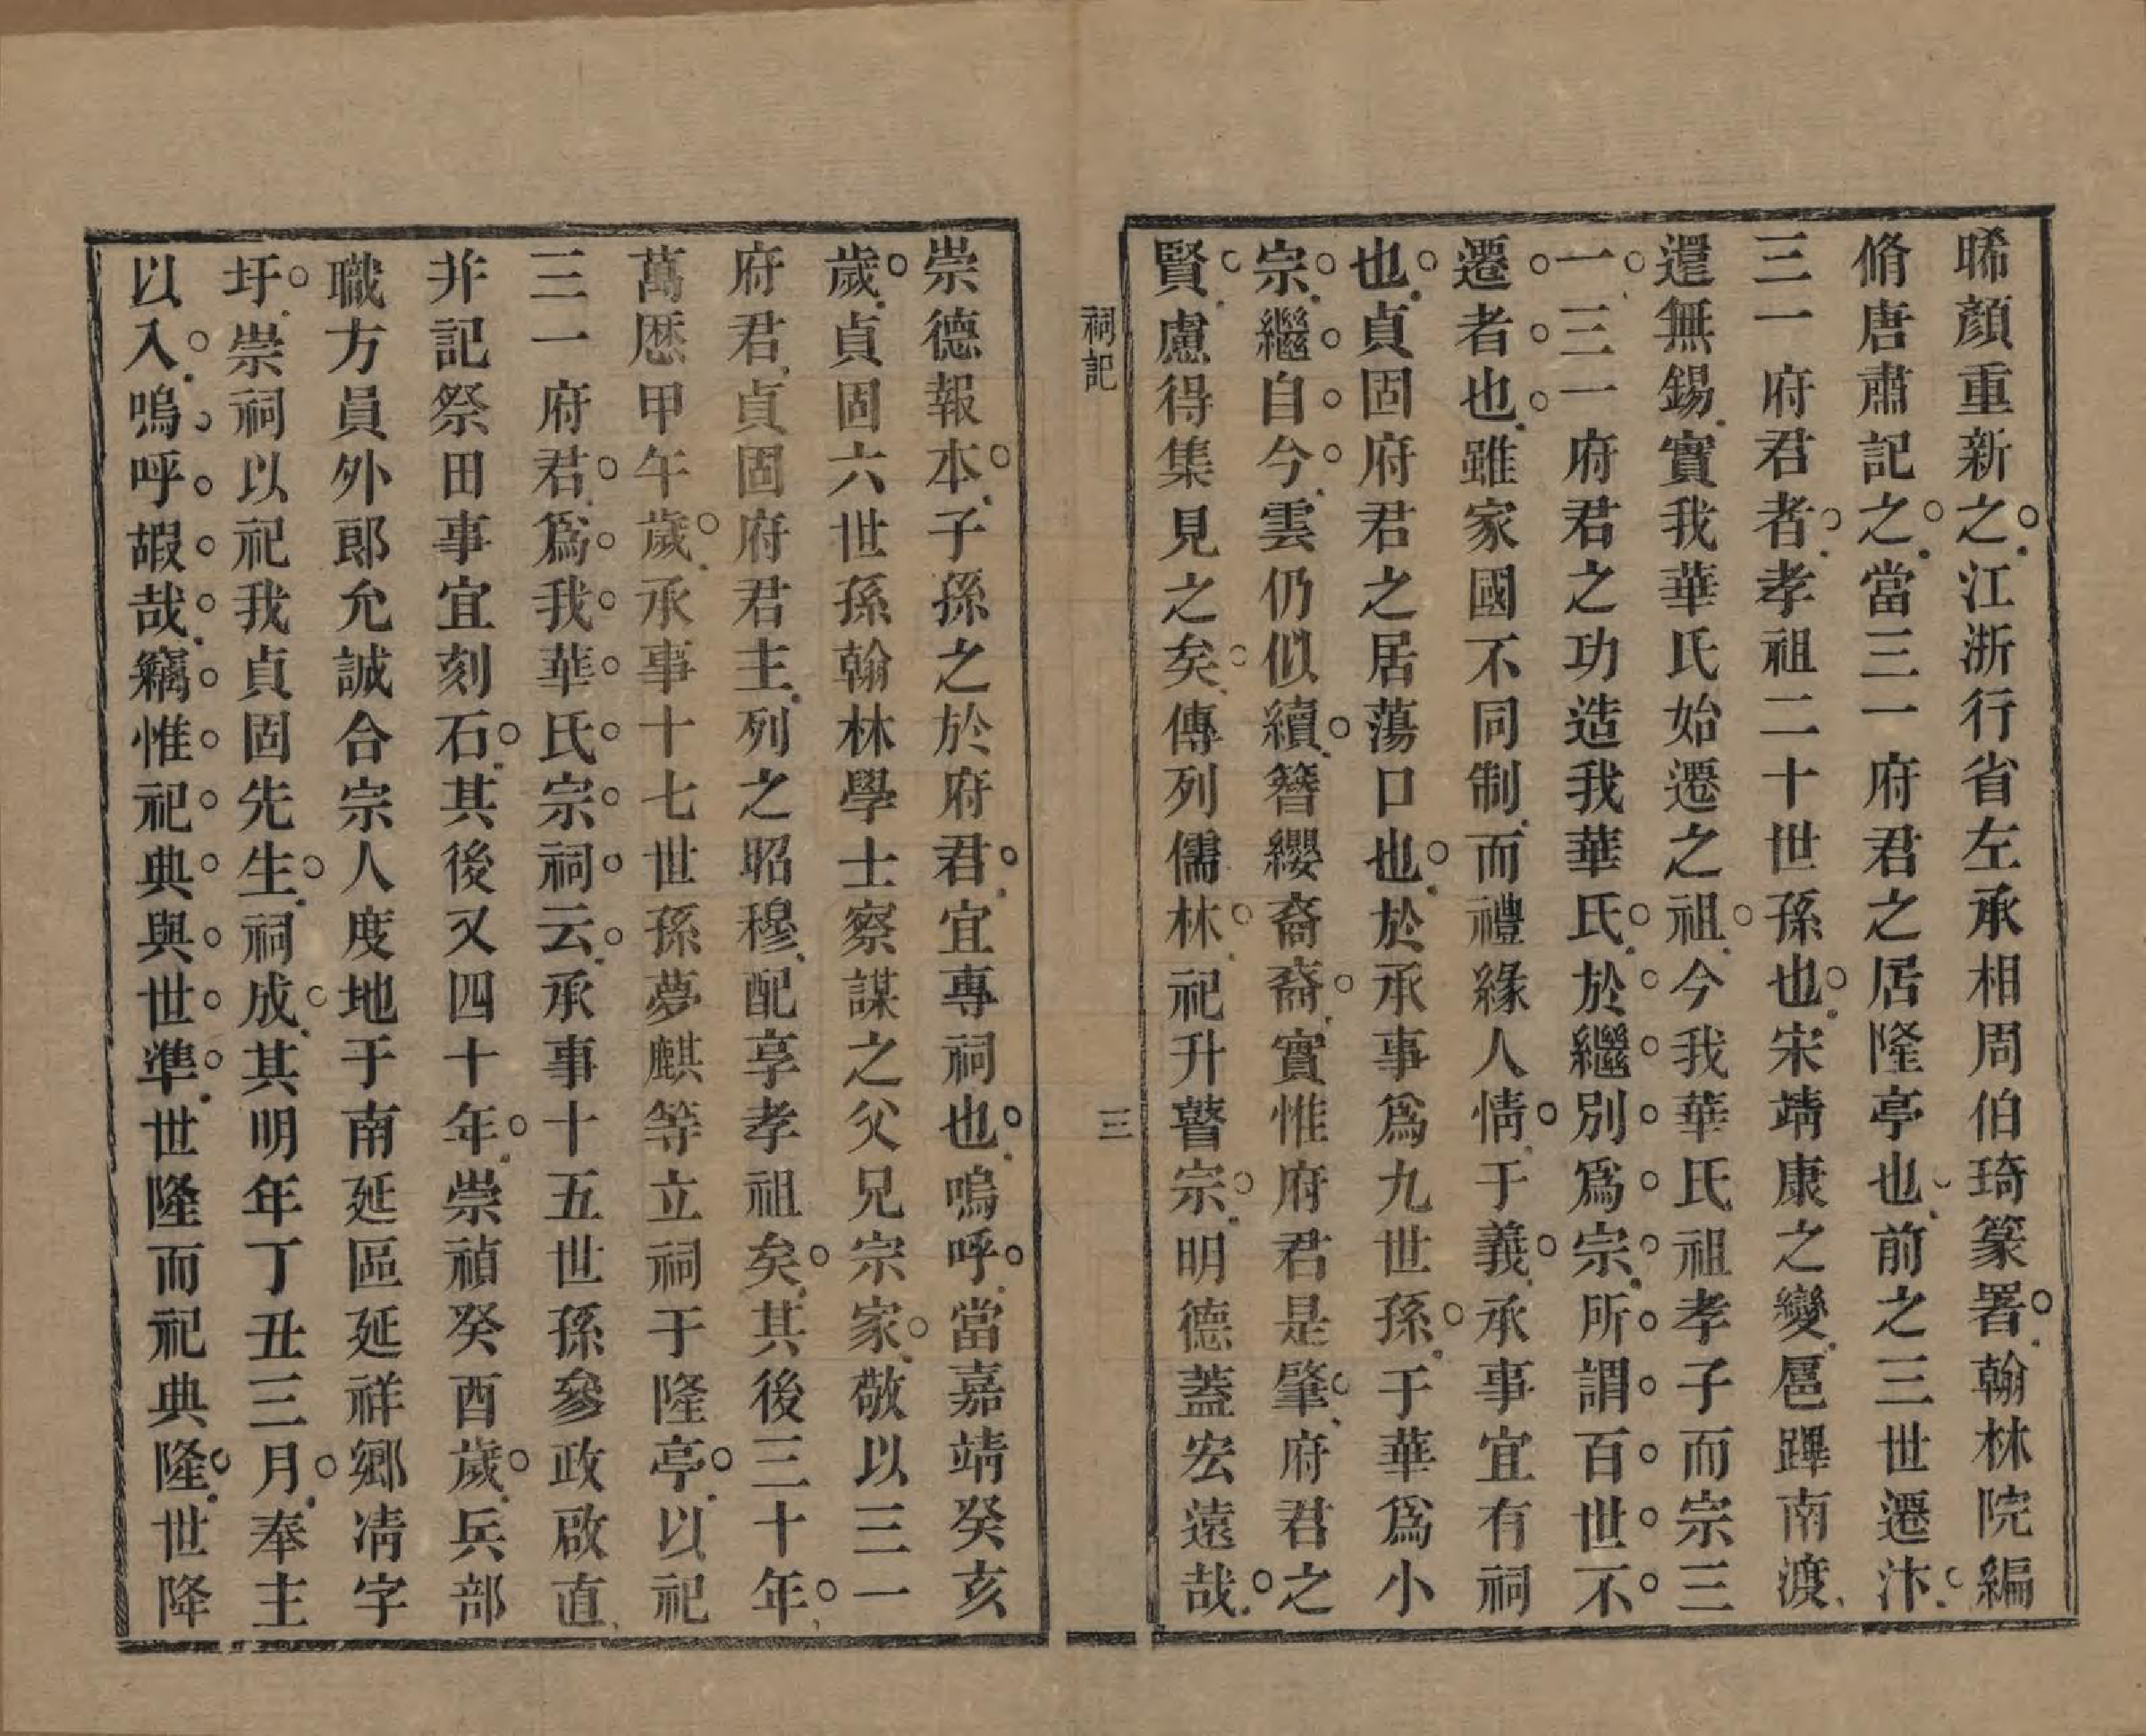 晞顏重新之江浙行省左承相周伯琦篆署翰林院編
脩唐肅記之當三一府君之居隆亭也前之三世遷汴
三一府君者孝祖二十世孫也宋靖康之變扈蹕南渡
還無錫實我華氏始遷之祖今我華氏祖孝子而宗三
一三一府君之功造我華氏於繼別爲宗所謂百世不
遷者也雖家國不同制而禮緣人情于義承事宜有祠
也貞固府君之居蕩口也於承事爲九世孫于華爲小
宗繼自今雲仍似續簪纓裔裔實惟府君是肇府君之
賢慮得集見之矣傳列儒林祀升瞽宗明德蓋宏遠哉
祠記
三
崇德報本子孫之於府君宜專祠也嗚呼當嘉靖癸亥
歲貞固六世孫翰林學士察謀之父兄宗家敬以三一
府君貞固府君主列之昭穆配享孝祖矣其後三十年
萬厯甲午歲承事十七世孫夢麒等立祠于隆亭以祀
三一府君爲我華氏宗祠云承事十五世孫參政啟直
并記祭田事宜刻石其後又四十年崇禎癸酉歲兵部
職方員外郎允誠合宗人度地于南延區延祥鄉凊字
圩崇祠以祀我貞固先生祠成其明年丁丑三月奉主
以入嗚呼嘏哉竊惟祀典與世準世隆而祀典隆世降